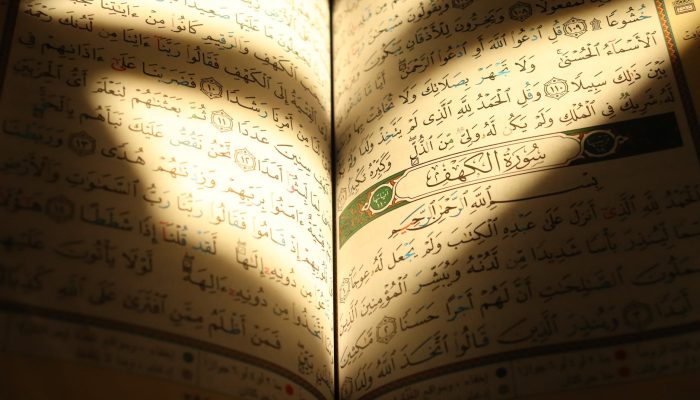 وَيَقُولُونَ
لَمَفْعُولًا ١٠٨ وَيَخِرُّونَ لِلْأَذْقَانِ يَبْكُونَ
خُشُوعًا ۩ ١٠٩ قُلِ ادْعُوا اللَّهَ أَوِ ادْعُوا الرَّحْمَٰنَ
الْأَسْمَاءُ الْحُسْنَىٰ وَلَا تَجْهَرْ بِصَلَاتِكَ وَلَا تُخَافِتْ بِهَا
بَيْنَ ذَٰلِكَ سَبِيلًا ١١٠ وَقُلِ الْحَمْدُ لِلَّهِ الَّذِي لَمْ يَتَّخِذْ وَلَدًا
لَهُ شَرِيكٌ فِي الْمُلْكِ وَلَمْ يَكُنْ لَهُ وَلِيٌّ مِنَ الذُّلِّ وَكَبِّرْهُ تَكْبِيرًا
سُورَةُ الْكَهْفِ
بِسْمِ اللَّهِ الرَّحْمَٰنِ الرَّحِيمِ
الْحَمْدُ لِلَّهِ الَّذِي أَنْزَلَ عَلَىٰ عَبْدِهِ الْكِتَابَ وَلَمْ يَجْعَلْ لَهُ عِوَجًا ١
لِيُنْذِرَ بَأْسًا شَدِيدًا مِنْ لَدُنْهُ وَيُبَشِّرَ الْمُؤْمِنِينَ الَّذِينَ
يَعْمَلُونَ الصَّالِحَاتِ أَنَّ لَهُمْ أَجْرًا حَسَنًا ٢ مَاكِثِينَ
أَبَدًا ٣ وَيُنْذِرَ الَّذِينَ قَالُوا اتَّخَذَ اللَّهُ وَلَدًا
مَا عَلَيْهَا
الْكَهْفِ وَالرَّقِيمِ كَانُوا مِنْ ءَايَاتِنَا
الْفِتْيَةُ إِلَى الْكَهْفِ فَقَالُوا رَبَّنَا ءَاتِنَا مِنْ لَدُنْكَ رَحْمَةً
مِنْ أَمْرِنَا رَشَدًا ١٠ فَضَرَبْنَا عَلَىٰ ءَاذَانِهِمْ فِي
الْكَهْفِ سِنِينَ عَدَدًا ١١ ثُمَّ بَعَثْنَاهُمْ لِنَعْلَمَ أَيُّ الْحِزْبَيْنِ
لِمَا لَبِثُوا أَمَدًا ١٢ نَحْنُ نَقُصُّ عَلَيْكَ نَبَأَهُمْ بِالْحَقِّ
ءَامَنُوا بِرَبِّهِمْ وَزِدْنَاهُمْ هُدًى ١٣ وَرَبَطْنَا
إِذْ قَامُوا فَقَالُوا رَبُّنَا رَبُّ السَّمَاوَاتِ وَالْأَرْضِ
مِنْ دُونِهِ إِلَٰهًا لَقَدْ قُلْنَا إِذًا شَطَطًا ١٤
اتَّخَذُوا مِنْ دُونِهِ ءَالِهَةً لَوْلَا يَأْتُونَ
فَمَنْ أَظْلَمُ مِمَّنِ افْتَرَىٰ عَلَى اللَّهِ كَذِبًا